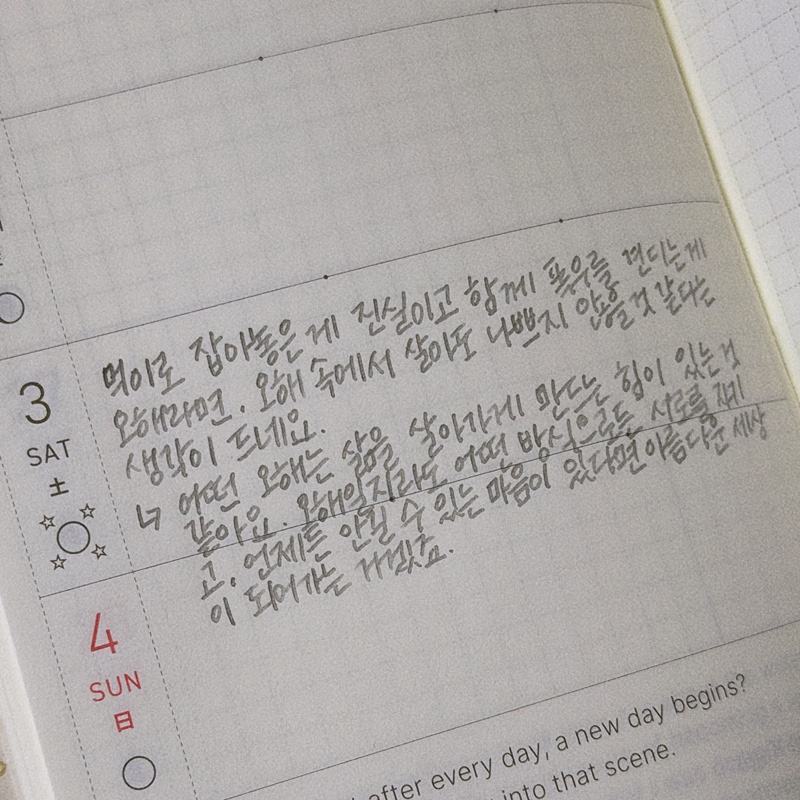 3
SAT
土
먹이로 잡아놓은 게 진실이고 함께 폭우를 견디는게
오해라면. 오해 속에서 살아도 나쁘지 않을것 같다는
생각이 드네요.
↳ 어떤 오해는 삶을 살아가게 만드는 힘이 있는것
같아요. 오해일지라도 어떤 방식으로든 서로를
고. 언제든 안길 수 있는 마음이 있다면 아름다운 세상
이 되어가는 거겠죠.
4
SUN
日
after every day, a new day begins?
into that scene.